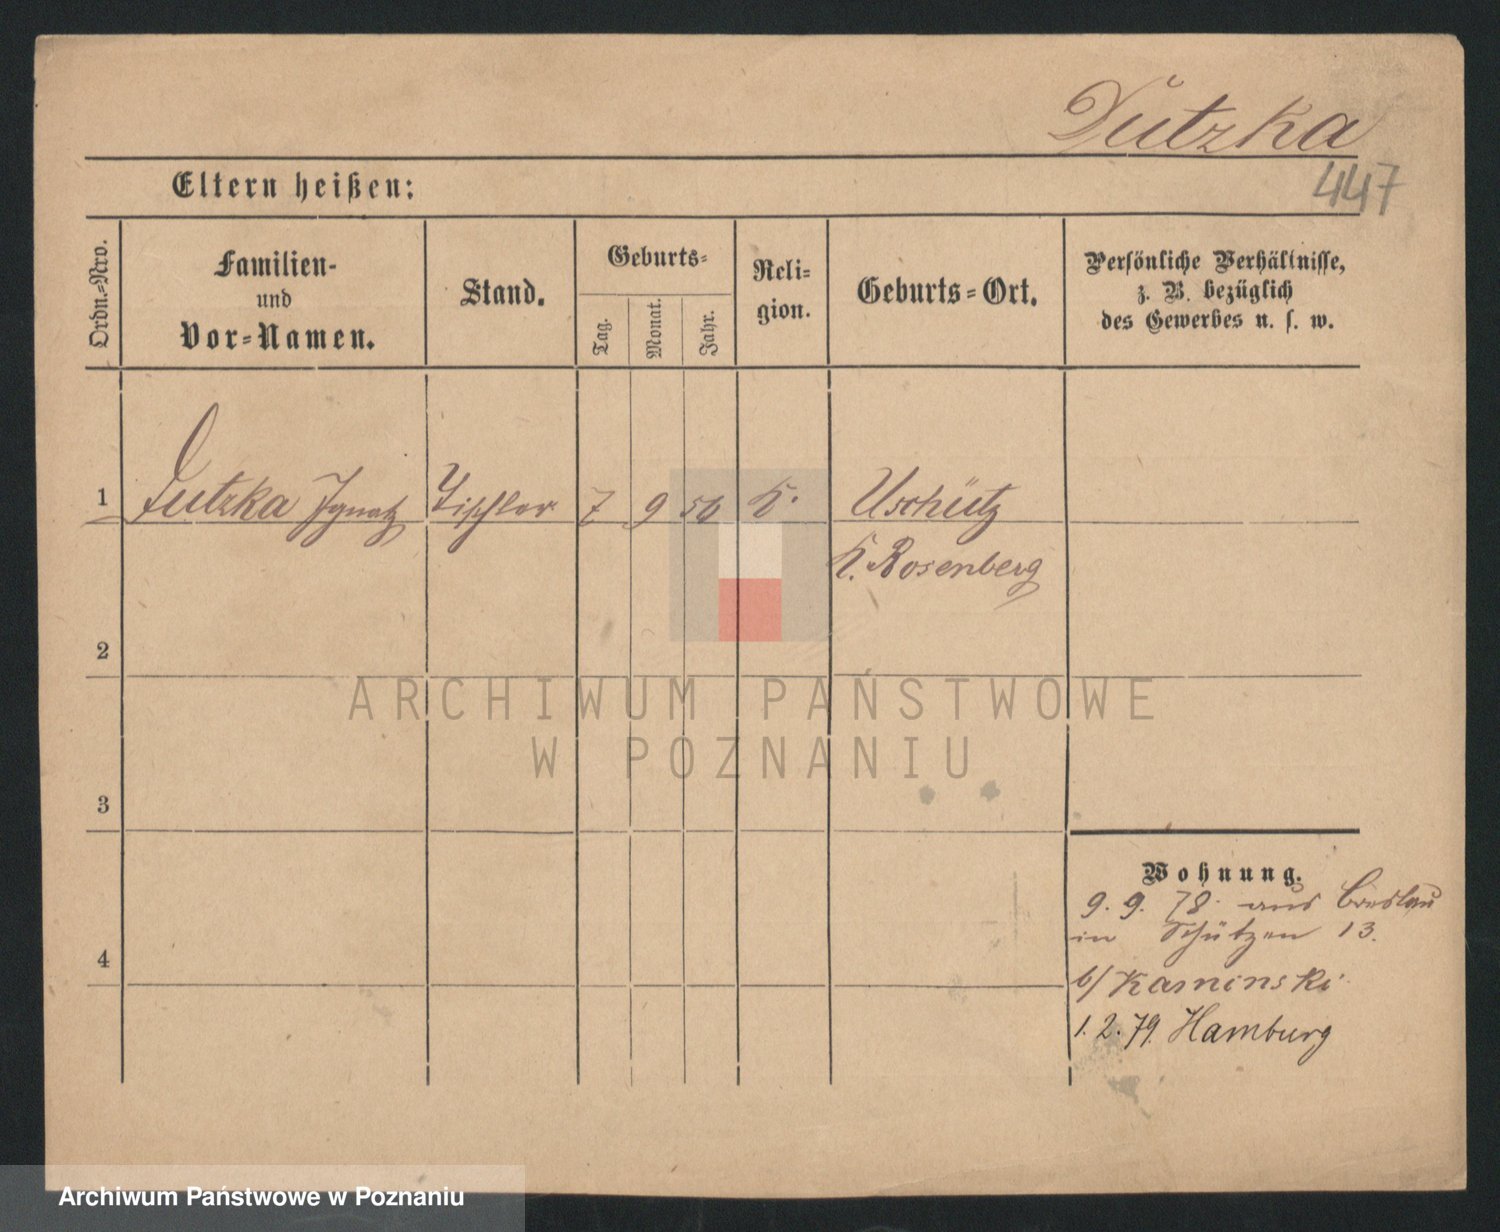 Dutzka
447
Eltern heißen:
Ordn.-Nro.
Familien-
und
Vor-Namen.
Stand.
Geburts-
Tag.
Monat.
Jahr.
Reli-
gion.
Geburts-Ort.
Persönliche Verhältnisse,
z. B. bezüglich
des Gewerbes u. s. w.
1 Dutzka Ignatz Tischler 7 9 56 K. Uschütz
K. Rosenberg
2
ARCHIWUM PAŃSTWOWE
W POZNANIU
3
Wohnung.
9. 9. 78. aus Breslau
in Schützen 13.
4
b/ Kaminski
1. 2. 79. Hamburg
Archiwum Państwowe w Poznaniu